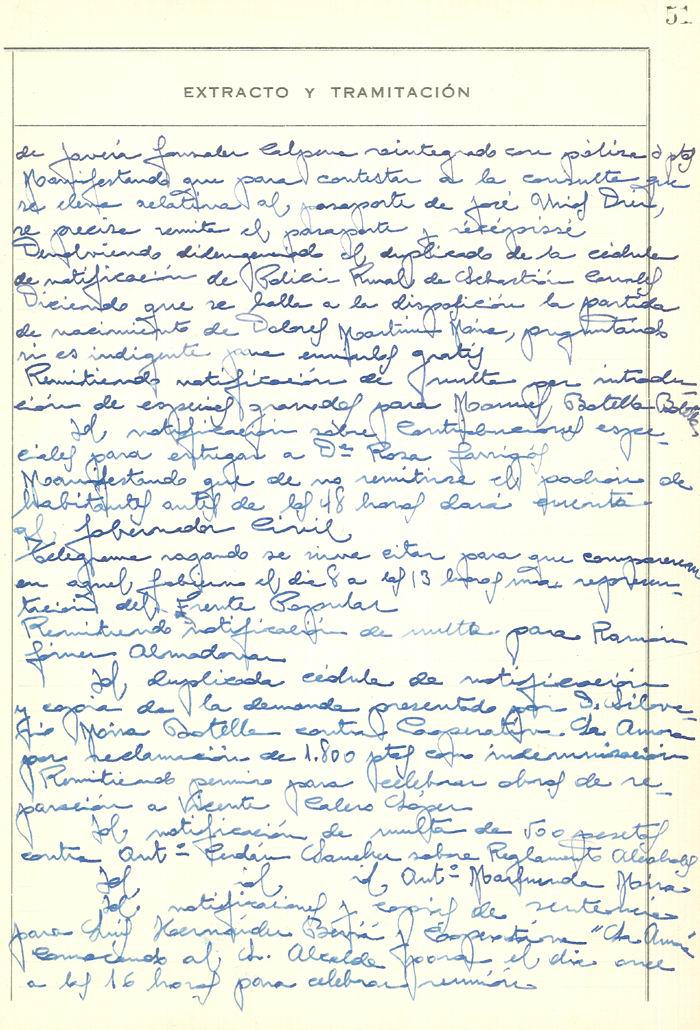 51
EXTRACTO Y TRAMITACIÓN
de Javiera Gonzalez Calpena reintegrado con póliza 3 ptas
Manifestando que para contestar a la consulta que
se eleva relativa al pasaporte de José
se precisa remita el pasaporte y recépissé
Devolviendo diligenciado el duplicado de la cédula
de notificación de Policia Rural de Sebastián
Diciendo que se halla a la disposición la partida
de nacimiento de Dolores Martinez Mira, preguntando
si es indigente para enviarlas gratis
Remitiendo notificación de multa por introduc-
ción de especies gravadas para Manuel Botella Botella
Id notificación sobre Contribuciones espe-
ciales para entregar a Dª Rosa Garrigós
Manifestando que de no remitirse el padrón de
habitantes antes de las 48 horas dará cuenta
al Gobernador Civil
Telegrama rogando se sirva citar para que comparezcan
en aquel Gobierno el dia 8 a las 13 horas una represen-
tación del Frente Popular
Remitiendo notificación de multa para Ramón
Giner Almadovar
Id duplicada cédula de notificación
y copia de la demanda presentado por D. Silve-
rio Mira Botella contra Cooperativa La Amora
por reclamación de 1.800 ptas como indemnización
Remitiendo permiso para celebrar obras de re-
paración a Vicente Calero López
Id notificación de multa de 500 pesetas
contra Antº Cerdán Sanchez sobre Reglamento Alcoholes
Id id id Antº Marhuenda Mira
Id notificaciones y copias de sentencia
para Luis Hernández y Cooperativa "La Amora
Convocando al Sr. Alcalde para el dia once
a las 16 horas para celebrar reunión